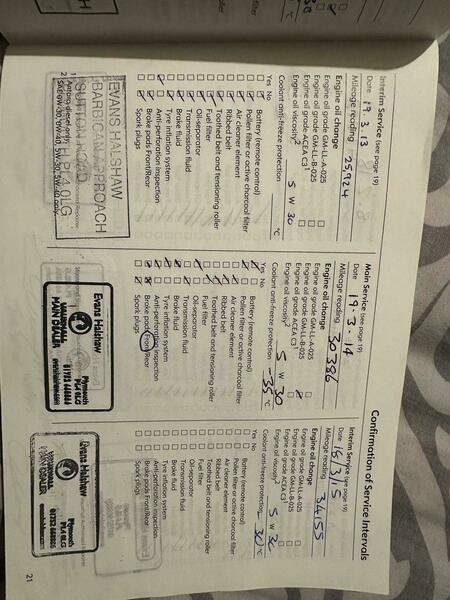 Confirmation of Service Intervals
Interim Service (see page 19)
Date 19.3.13
Mileage reading 25924
Engine oil change
Engine oil grade GM-LL-A-025
Engine oil grade GM-LL-B-025
Engine oil grade ACEA C3¹
Engine oil viscosity² 5 W 30
Coolant anti-freeze protection °C
Yes No
Battery (remote control)
Pollen filter or active charcoal filter
Air cleaner element
Ribbed belt
Toothed belt and tensioning roller
Fuel filter
Oil-separator
Transmission fluid
Brake fluid
Tyre inflation system
Anti-perforation inspection
Brake pads Front/Rear
Spark plugs
EVANS HALSHAW
BARBICAN APPROACH
SUTTON ROAD
PL4 0LG
Main Service (see page 19)
Date 19.3.14
Mileage reading 30386
Engine oil change
Engine oil grade GM-LL-A-025
Engine oil grade GM-LL-B-025
Engine oil grade ACEA C3¹
Engine oil viscosity² 5 W 30
Coolant anti-freeze protection -35 °C
Yes No
Battery (remote control)
Pollen filter or active charcoal filter
Air cleaner element
Ribbed belt
Toothed belt and tensioning roller
Fuel filter
Oil-separator
Transmission fluid
Brake fluid
Tyre inflation system
Anti-perforation inspection
Brake pads Front/Rear
Spark plugs
Evans Halshaw
VAUXHALL
MAIN DEALER
Plymouth
PL4 0LG
Interim Service (see page 19)
Mileage reading 34155
Engine oil change
Engine oil grade GM-LL-A-025
Engine oil grade GM-LL-B-025
Engine oil grade ACEA C3¹
Engine oil viscosity² 5 W 30
Coolant anti-freeze protection 30 °C
Yes No
Battery (remote control)
Pollen filter or active charcoal filter
Air cleaner element
Ribbed belt
Toothed belt and tensioning roller
Fuel filter
Oil-separator
Transmission fluid
Brake fluid
Tyre inflation system
Anti-perforation inspection
Brake pads Front/Rear
Spark plugs
Evans Halshaw
VAUXHALL
MAIN DEALER
Plymouth
PL4 0LG
21